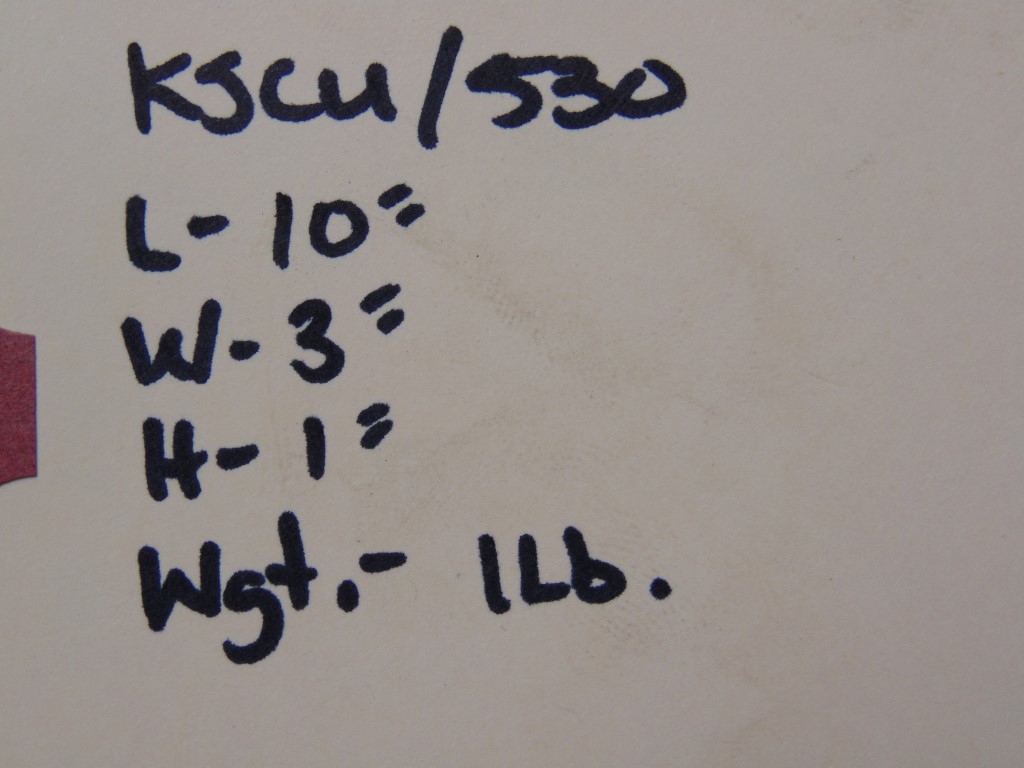 KSCU/530
L- 10"
W- 3"
H- 1"
Wgt.- 1Lb.